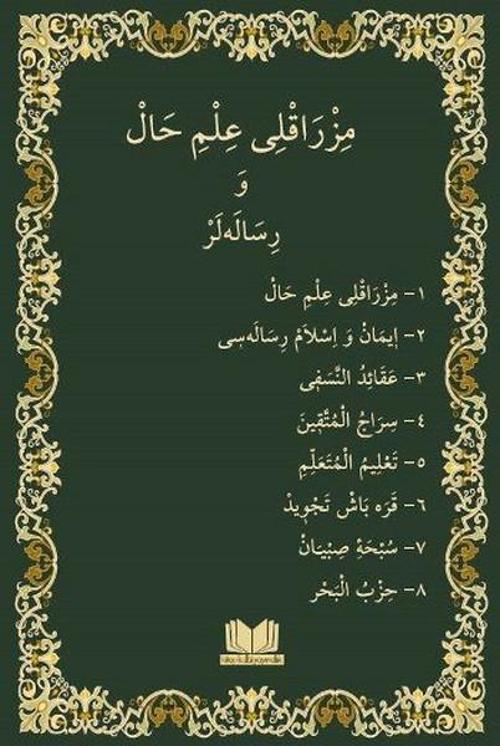 مِزْرَاقْلِى عِلْمِ حَالْ
وَ
رِسَالَەلَرْ
١- مِزْرَاقْلِى عِلْمِ حَالْ
٢- اِيمَانْ وَ اِسْلَامْ رِسَالَەسِى
٣- عَقَائِدُ النَّسَفِى
٤- سِرَاجُ الْمُتَّقِينَ
٥- تَعْلِيمُ الْمُتَعَلِّمِ
٦- قَرَە بَاشْ تَجْوِيدْ
٧- سُبْحَۀِ صِبْيَانْ
٨- حِزْبُ الْبَحْر